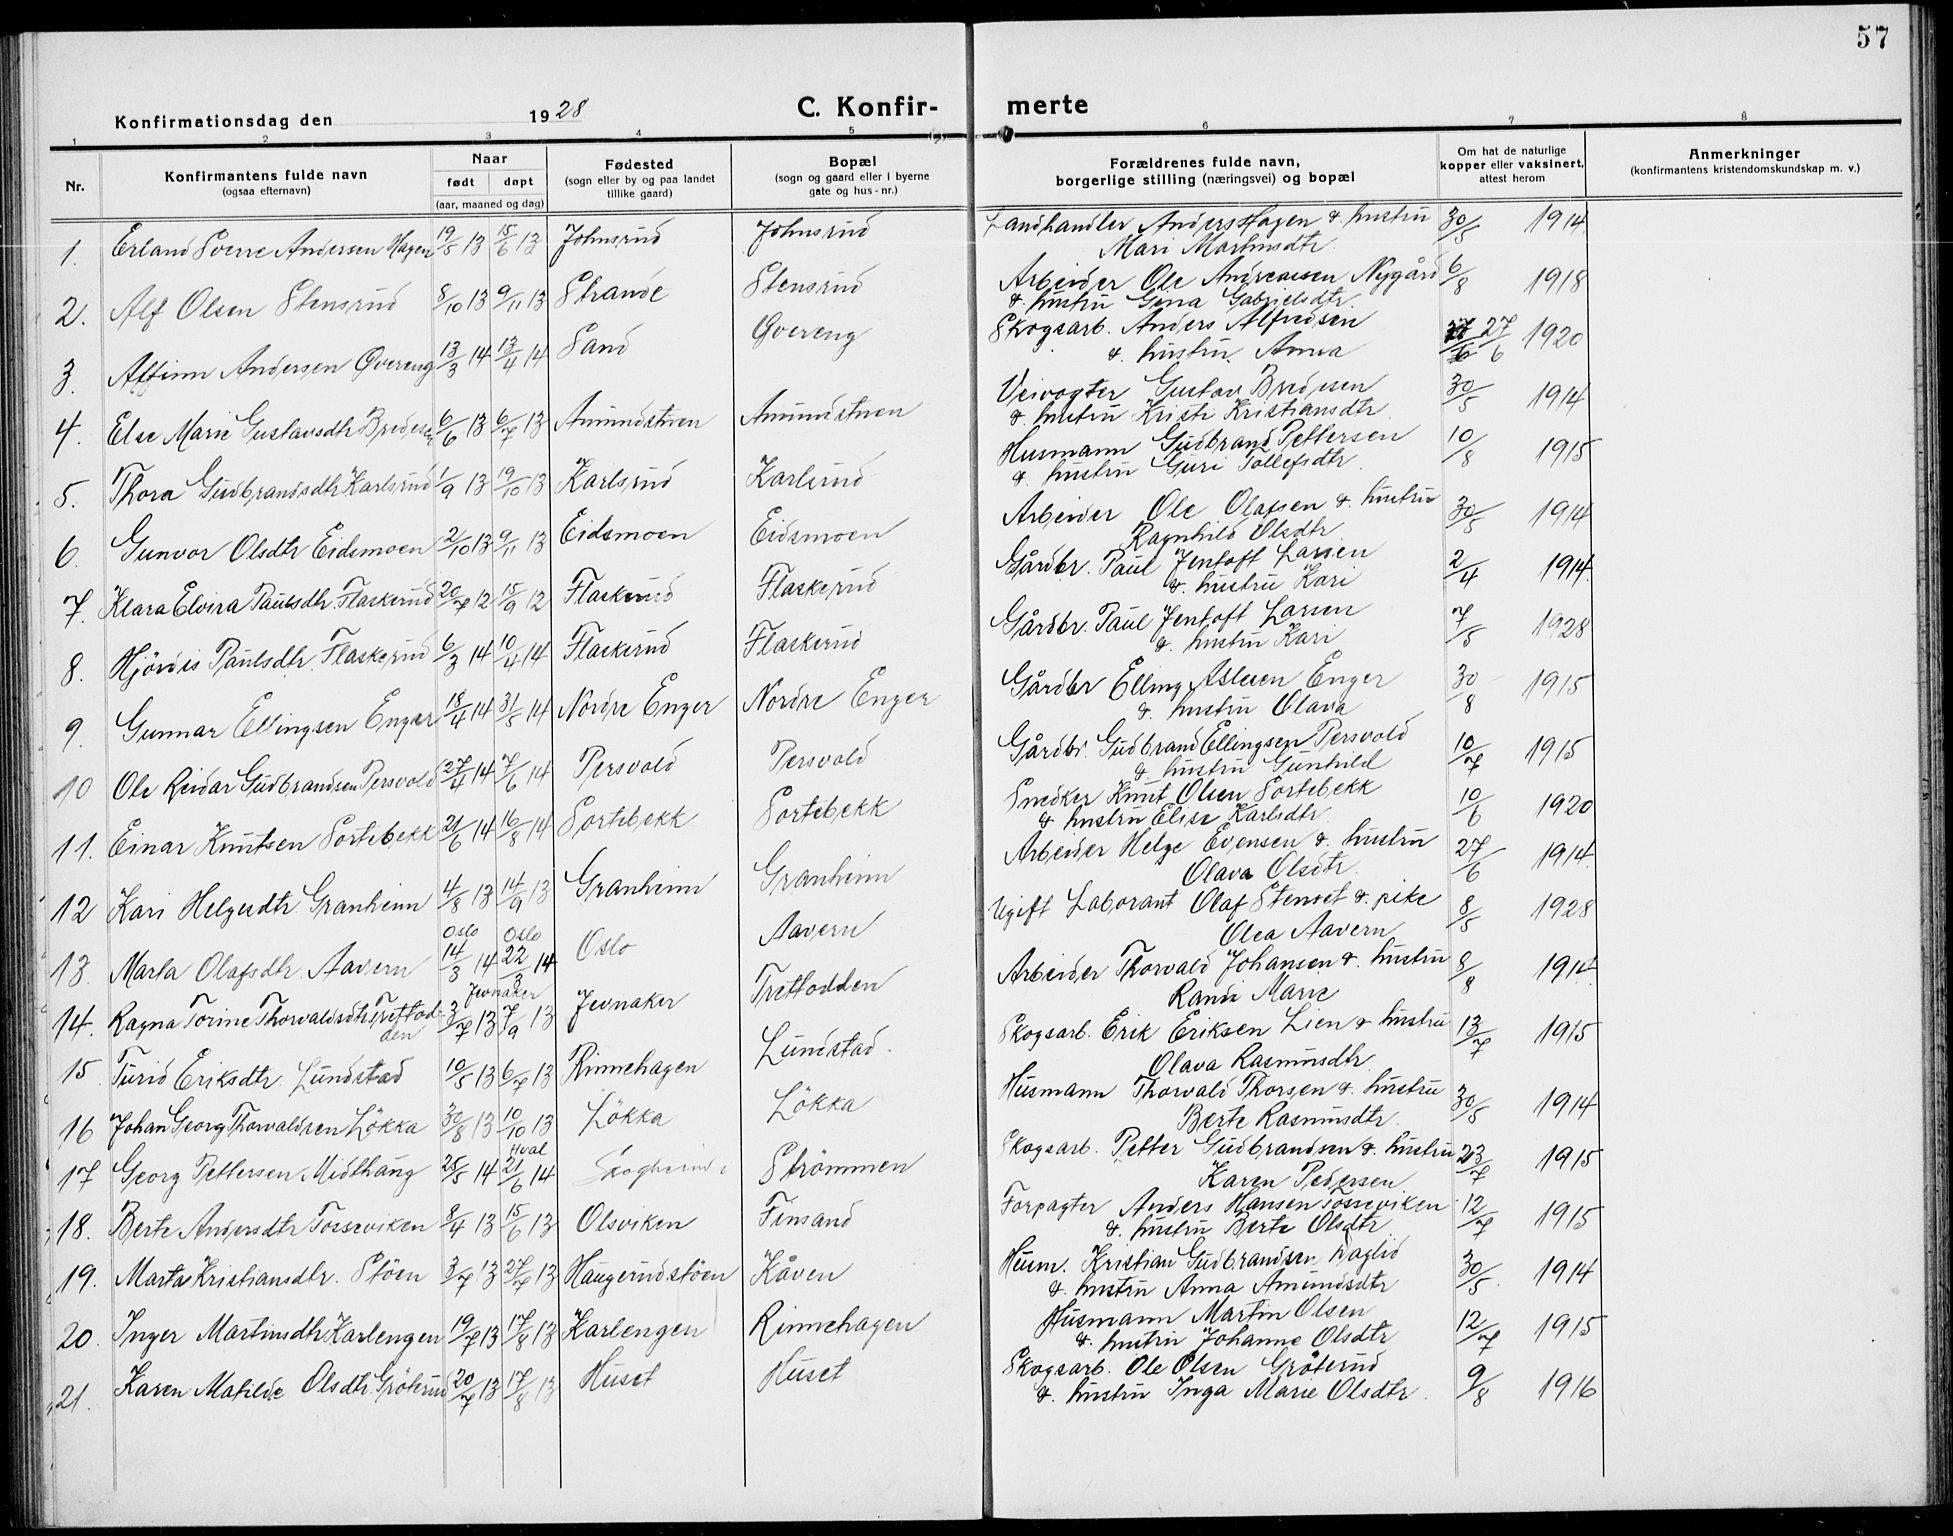 57
Konfirmationsdag den 1928 C. Konfir- merte
1 2 3 4 5 6 7 8
Nr. Konfirmantens fulde navn (ogsaa efternavn) Naar født døpt (aar, maaned og dag) Fødested (sogn eller by og paa landet tillike gaard) Bopæl (sogn og gaard eller i byerne gate og hus-nr.) Forældrenes fulde navn, borgerlige stilling (næringsvei) og bopæl Om hat de naturlige kopper eller vaksinert, attest herom Anmerkninger (konfirmantens kristendomskundskap m. v.)
1. Erland Sverre Andersen Hagen 19/5 13 15/6 13 Johnsrud Johnsrud Landhandler Anders Hagen & hustru 30/5 1914
Mari Martinsdtr.
2. Alf Olsen Stensrud 8/10 13 9/11 13 Strande Stensrud Arbeider Ole Andreasen Nygård 6/8 1918
& hustru Gina Gabrielsdtr.
3. Alfinn Andersen Øvereng 13/3 14 13/4 14 Sand Øvereng Skogsarb. Anders Alfredsen 27/6 1920
& hustru Anna
4. Else Marie Gustavsdtr Bredesen 6/6 13 6/7 13 Amundstuen Amundstuen Veivogter Gustav Bredesen 30/5 1914
& hustru Kristi Kristiansdtr
5. Thora Gudbrandsdtr Karlsrud 1/9 13 19/10 13 Karlsrud Karlsrud Husmann Gudbrand Pettersen 10/8 1915
& hustru Guri Tollefsdtr.
6. Gunvor Olsdtr Eidsmoen 2/10 13 9/11 13 Eidsmoen Eidsmoen Arbeider Ole Olafsen & hustru 30/5 1914
Ragnhild Olsdtr
7. Klara Elvira Paulsdtr. Flaskerud 20/7 12 15/9 12 Flaskerud Flaskerud Gårdbr. Paul Jentoft Larsen 2/4 1914
& hustru Kari
8. Hjördis Paulsdtr. Flaskerud 6/3 14 10/4 14 Flaskerud Flaskerud Gårdbr. Paul Jentoft Larsen 7/5 1928
& hustru Kari
9. Gunnar Ellingsen Enger 18/4 14 31/5 14 Nordre Enger Nordre Enger Gårdbr Elling Aslesen Enger 30/8 1915
& hustru Olava
10 Ole Reidar Gudbrandsen Persvold 27/4 14 7/6 14 Persvold Persvold Gårdbr. Gudbrand Ellingsen Persvold 10/7 1915
& hustru Gunhild
11. Einar Knutsen Sortebekk 21/6 14 16/8 14 Sortebekk Sortebekk Snedker Knut Olsen Sortebekk 10/6 1920
& hustru Elise Karlsdtr.
12 Kari Helgesdtr. Granheim 4/8 13 14/9 13 Granheim Granheim Arbeider Helge Evensen & hustru 27/6 1914
Olava Olsdtr.
13. Marta Olafsdtr. Aavern Oslo 14/3 14 Oslo 22/3 14 Oslo Aavern Ugift Laborant Olaf Stenset & pike 8/5 1928
Olea Aavern
14. Ragna Torine Thorvaldsdtr Trettodden 3/7 13 Jevnaker 7/9 13 Jevnaker Trettodden Arbeider Thorvald Johansen & hustru 8/8 1914
Randi Marie
15 Turid Eriksdtr. Lundstad 10/5 13 6/7 13 Rinnehagen Lundstad. Skogsarb. Erik Eriksen Lien & hustru 13/7 1915
Olava Rasmusdtr.
16 Johan Georg Thorvaldsen Lökka 30/8 13 10/10 13 Lökka Lökka Husmann Thorvald Thorsen & hustru 30/5 1914
Berte Rasmusdtr.
17 Georg Pettersen Midthaug 25/5 14 Hval 21/6 14 Strömmen Skogsarb. Petter Gudbrandsen & hustru 23/7 1915
Karen Pedersen
18. Berte Andersdtr Tosseviken 8/4 13 15/6 13 Olsviken Finsand Forpagter Anders Hansen Tosseviken 12/7 1915
& hustru Berte Olsdtr
19. Marta Kristiansdtr. Stöen 3/7 13 27/7 13 Haugerudstöen Kåven Husm. Kristian Gudbrandsen Daglid 30/5 1914
& hustru Anna Amundsdtr
20. Inger Martinsdtr Karlengen 19/7 13 17/8 13 Karlengen Rinnehagen Husmann Martin Olsen 12/7 1915
& hustru Johanne Olsdtr
21. Karen Matilde Olsdtr. Gröterud 20/7 13 17/8 13 Huset Huset Skogsarb. Ole Olsen Gröterud 9/8 1916
& hustru Inga Marie Olsdtr.